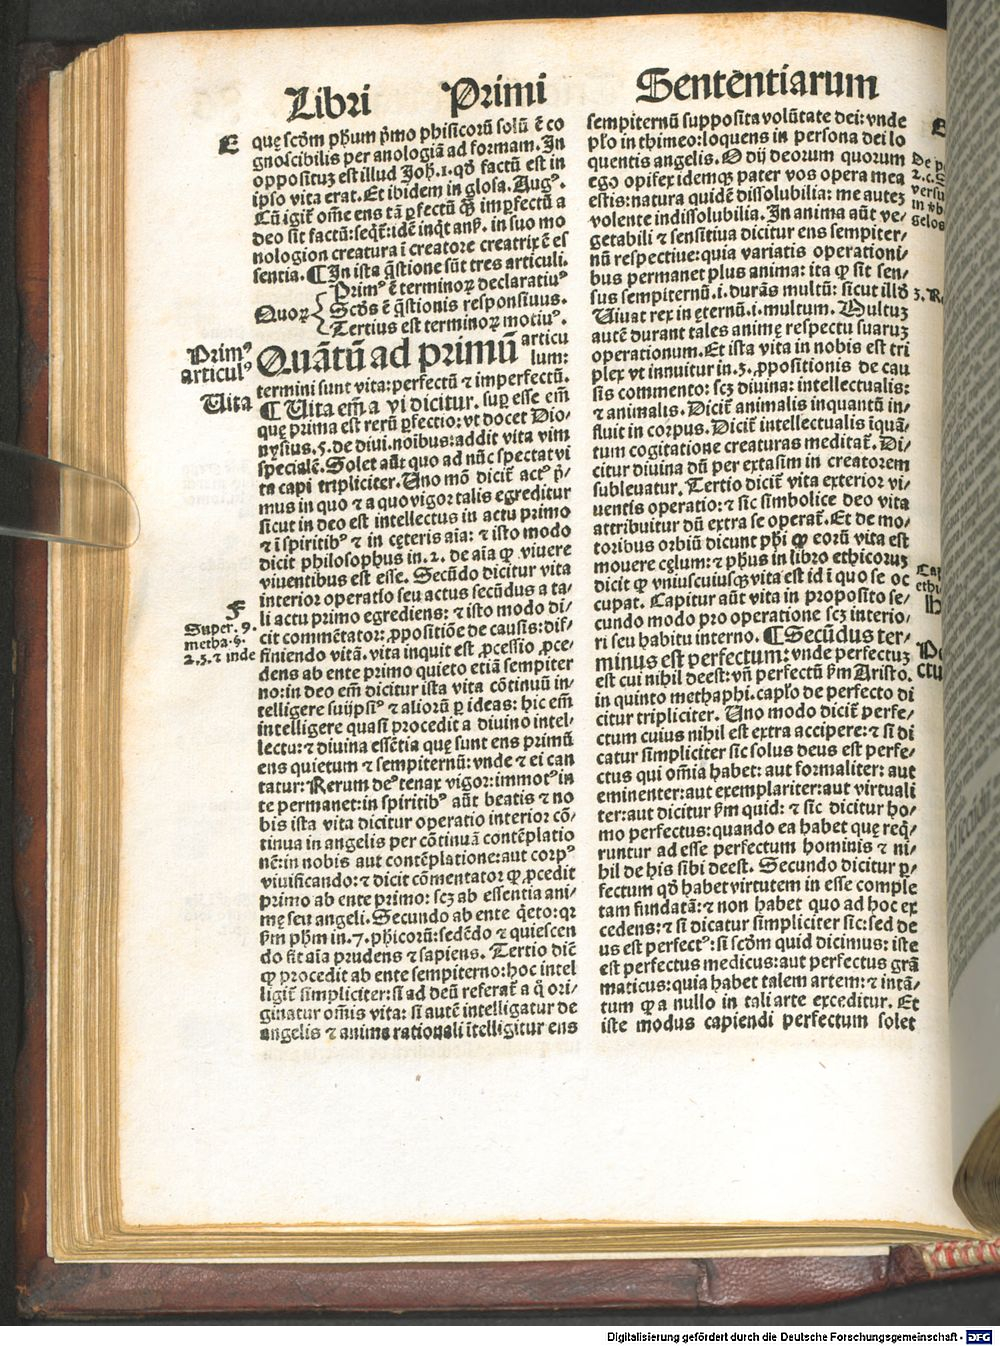 Libri Primi Sententiarum
E
quę scd̄m ph̄um p̄mo phisicorū solū ē co
gnoscibilis per anologiā ad formam. In
opposituꝫ est illud Joh̄.1.qd̄ factū est in
ipso vita erat. Et ibidem in glosa. Augꝰ.
Cū igit̄ om̄e ens tā ꝑfectū qꝫ̄ imꝑfectū a
deo sit factū: seq̄t̄: idē inq̄t ans̄. in suo mo
nologion creatura ī creatore creatrix ē es
sentia. ¶ In ista q̄stione sūt tres articuli.
Primꝰ ē terminoꝝ declaratiuꝰ
Quoꝝ Scd̄s ē q̄stionis responsiuus.
Tertius est terminoꝝ motiuꝰ.
Primꝰ
articulꝰ
Quātū ad primū articu
lum:
termini sunt vita: perfectū ⁊ imperfectū.
Uita
¶ Uita em̄ a vi dicitur. suꝑ esse em̄
quę prima est rerū ꝑfectio: vt docet Dio-
nysius.5. de diui. noībus: addit vita vim
specialē. Solet aūt quo ad nūc spectat vi
ta capi tripliciter. Uno mō dicit̄ actꝰ p̄-
mus in quo ⁊ a quo vigor talis egreditur
sicut in deo est intellectus in actu primo
⁊ ī spiritibꝰ ⁊ in cęteris aīa: ⁊ isto modo
dicit philosophus in.2. de aīa ꝙ viuere
viuentibus est esse. Secūdo dicitur vita
interior operatio seu actus secūdus a ta-
F
li actu primo egrediens: ⁊ isto modo di-
Super.9.
cit commētator: ꝓpositiōe de causis: dif-
metha.§.
2.5.⁊ inde
finiendo vitā. vita inquit est ꝓcessio ꝓce-
dens ab ente primo quieto etiā sempiter
no: in deo em̄ dicitur ista vita cōtinuū in-
telligere suijpsiꝰ ⁊ aliorū ꝑ ideas: hic em̄
intelligere quasi procedit a diuino intel-
lectu: ⁊ diuina essētia quę sunt ens primū
ens quietum ⁊ sempiternū: vnde ⁊ ei can
tatur: Rerum deꝰ tenax vigor: immotꝰ in
te permanet: in spiritibꝰ aūt beatis ⁊ no
bis ista vita dicitur operatio interior cō-
tinua in angelis per cōtinuā contēplatio
nē: in nobis aut contēplatione: aut corpꝰ
viuificando: ⁊ dicit cōmentator ꝙ ꝓcedit
primo ab ente primo: scꝫ ab essentia ani-
mę seu angeli. Secundo ab ente q̄to: qꝛ
ẜm ph̄m in.7. ph̄icorū: sedēdo ⁊ quiescen
do fit aīa prudens ⁊ sapiens. Tertio dic̄
ꝙ procedit ab ente sempiterno: hoc intel
ligit̄ simpliciter: si ad deū referat̄ a q̊ ori-
ginatur om̄is vita: si autē intelligatur de
angelis ⁊ anima rationali ītelligitur ens
sempiternū supposita volūtate dei: vnde
plō in thimeo: loquens in persona dei lo
quentis angelis. O dij deorum quorum
ego opifex idemqꝫ pater vos opera mea
estis: natura quidē dissolubilia: me auteꝫ
volente indissolubilia. In anima aūt ve-
getabili ⁊ sensitiua dicitur ens sempiter-
nū respectiue: quia variatis operationi-
bus permanet plus anima: ita ꝙ sit sen-
sus sempiternū.i. durās multū: sicut illd̄
Uiuat rex in ęternū.i. multum. Multuꝫ
autē durant tales animę respectu suaruꝫ
operationum. Et ista vita in nobis est tri
plex vt innuitur in.3. ꝓpositionis de cau
sis commento: scꝫ diuina: intellectualis:
⁊ animalis. Dicit̄ animalis inquantū in-
fluit in corpus. Dicit̄ intellectualis īquā-
tum cogitatione creaturas meditat̄. Di-
citur diuina dū per extasim in creatorem
subleuatur. Tertio dicit̄ vita exterior vi-
uentis operatio: ⁊ sic simbolice deo vita
attribuitur dū extra se operat̄. Et de mo-
toribus orbiū dicunt ph̄i ꝙ eorū vita est
mouere cęlum: ⁊ ph̄us in libro ethicoruꝫ
dicit ꝙ vniuscuiusqꝫ vita est id ī quo se oc
cupat. Capitur aūt vita in proposito se-
cundo modo pro operatione scꝫ interio-
ri seu habitu interno. ¶ Secūdus ter-
minus est perfectum: vnde perfectuꝫ
est cui nihil deest: vn̄ perfectū ẜm Aristo.
in quinto methaphi. caplo de perfecto di
citur tripliciter. Uno modo dicit̄ perfe-
ctum cuius nihil est extra accipere: ⁊ si di
catur simpliciter sic solus deus est perfe-
ctus qui om̄ia habet: aut formaliter: aut
eminenter: aut exemplariter: aut virtuali
ter: aut dicitur ẜm quid: ⁊ sic dicitur ho-
mo perfectus: quando ea habet quę req̄-
runtur ad esse perfectum hominis ⁊ ni-
hil de his sibi deest. Secundo dicitur ꝑ-
fectum qd̄ habet virtutem in esse comple
tam fundatā: ⁊ non habet quo ad hoc ex
cedens: ⁊ si dicatur simpliciter sic: sed de
us est perfectꝰ: si scd̄m quid dicimus: iste
est perfectus medicus: aut perfectus grā
maticus: quia habet talem artem: ⁊ intā-
tum ꝙ a nullo in tali arte exceditur. Et
iste modus capiendi perfectum solet
Digitalisierung gefördert durch die Deutsche Forschungsgemeinschaft - DFG